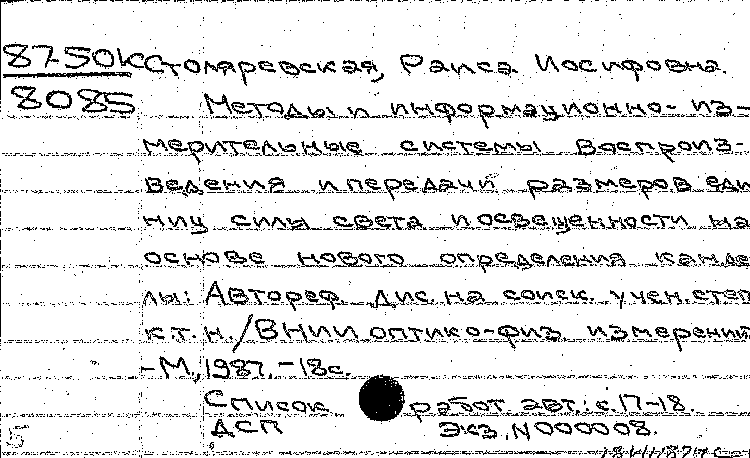 87-50к Столяревская, Раиса Иосифовна.
8085 Методы и информационно-из-
мерительные системы воспроиз-
ведения и передачи размеров еди
ниц силы света и освещенности на
основе нового определения канде
лы: Автореф. дис. на соиск. учен. степ
к.т.н./ВНИИ оптико-физ. измерений
-М., 1987.-18с.
Список работ авт.: с.17-18.
ДСП Экз. N000008.
5